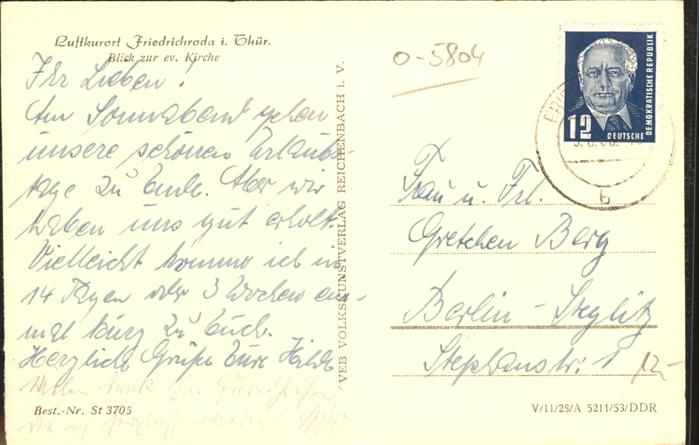 Luftkurort Friedrichroda i. Thür.
Blick zur ev. Kirche
Ihr Lieben!
Am Sonnabend gehen
unsere schönen Urlaubs-
tage zu Ende. Aber wir
haben uns gut erholt.
Vielleicht komme ich in
14 Tagen oder 3 Wochen ein-
mal kurz zu Euch.
Herzliche Grüße Eure Hilde
Vielen Dank
Best.-Nr. St 3705
VEB VOLKSKUNSTVERLAG REICHENBACH i. V.
0-5804
12
DEUTSCHE
DEMOKRATISCHE REPUBLIK
b
Frau u. Frl.
Gretchen Berg
Berlin-Steglitz
Stephanstr. 1
12-
V/11/28/A 5211/53/DDR